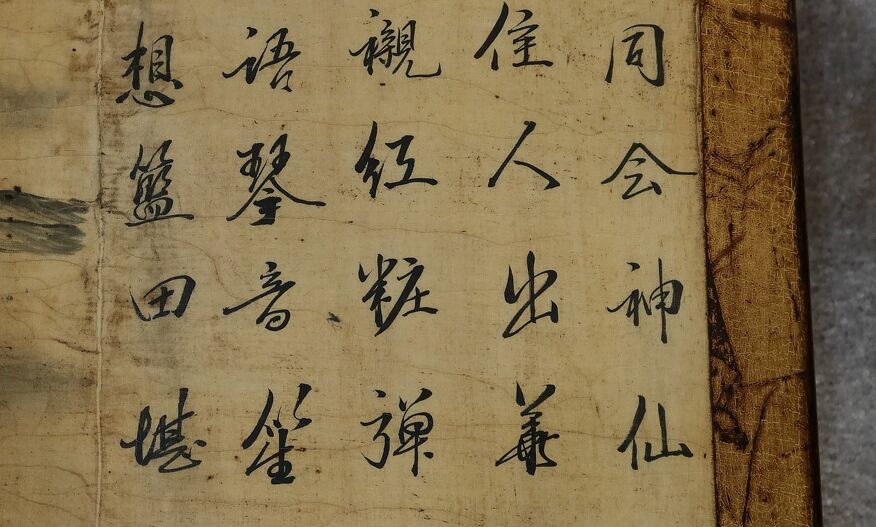 同会神仙
佳人出華
襯紅粧弾
語琴音笙
想籃田堪